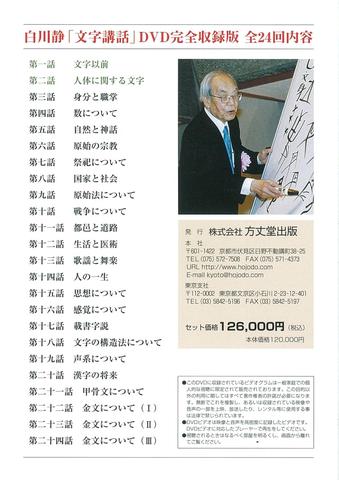 白川静「文字講話」DVD完全収録版 全24回内容
第一話 文字以前
第二話 人体に関する文字
第三話 身分と職掌
第四話 数について
第五話 自然と神話
第六話 原始の宗教
第七話 祭祀について
第八話 国家と社会
第九話 原始法について
第十話 戦争について
第十一話 都邑と道路
第十二話 生活と医術
第十三話 歌謡と舞楽
第十四話 人の一生
第十五話 思想について
第十六話 感覚について
第十七話 載書字説
第十八話 文字の構造法について
第十九話 声系について
第二十話 漢字の将来
第二十一話 甲骨文について
第二十二話 金文について（Ⅰ）
第二十三話 金文について（Ⅱ）
第二十四話 金文について（Ⅲ）
発行 株式会社 方丈堂出版
本社
〒601-1422 京都市伏見区日野不動講町38-25
TEL (075) 572-7508 FAX (075) 571-4373
URL http://www.hojodo.com
E-mail kyoto@hojodo.com
東京支社
〒112-0002 東京都文京区小石川2-23-12-401
TEL (03) 5842-5196 FAX (03) 5842-5197
セット価格 126,000円（税込）
本体価格120,000円
●このDVDに収録されているビデオグラムは一般家庭での個
人的な視聴に限定されて販売されております。この目的以
外の利用に関してはすべて著作権者の許諾が必要になりま
す。無断でこれを複製し、あるいは収録されている映像や
音声の一部を上映、放送したり、レンタル等に使用する事
は法律で禁じられています。
●DVDビデオは映像と音声を高密度に記録したビデオです。
DVDビデオに対応したプレーヤーで再生をしてください。
●視聴されるときはなるべく部屋を明るくし、画面から離れ
てご覧ください。